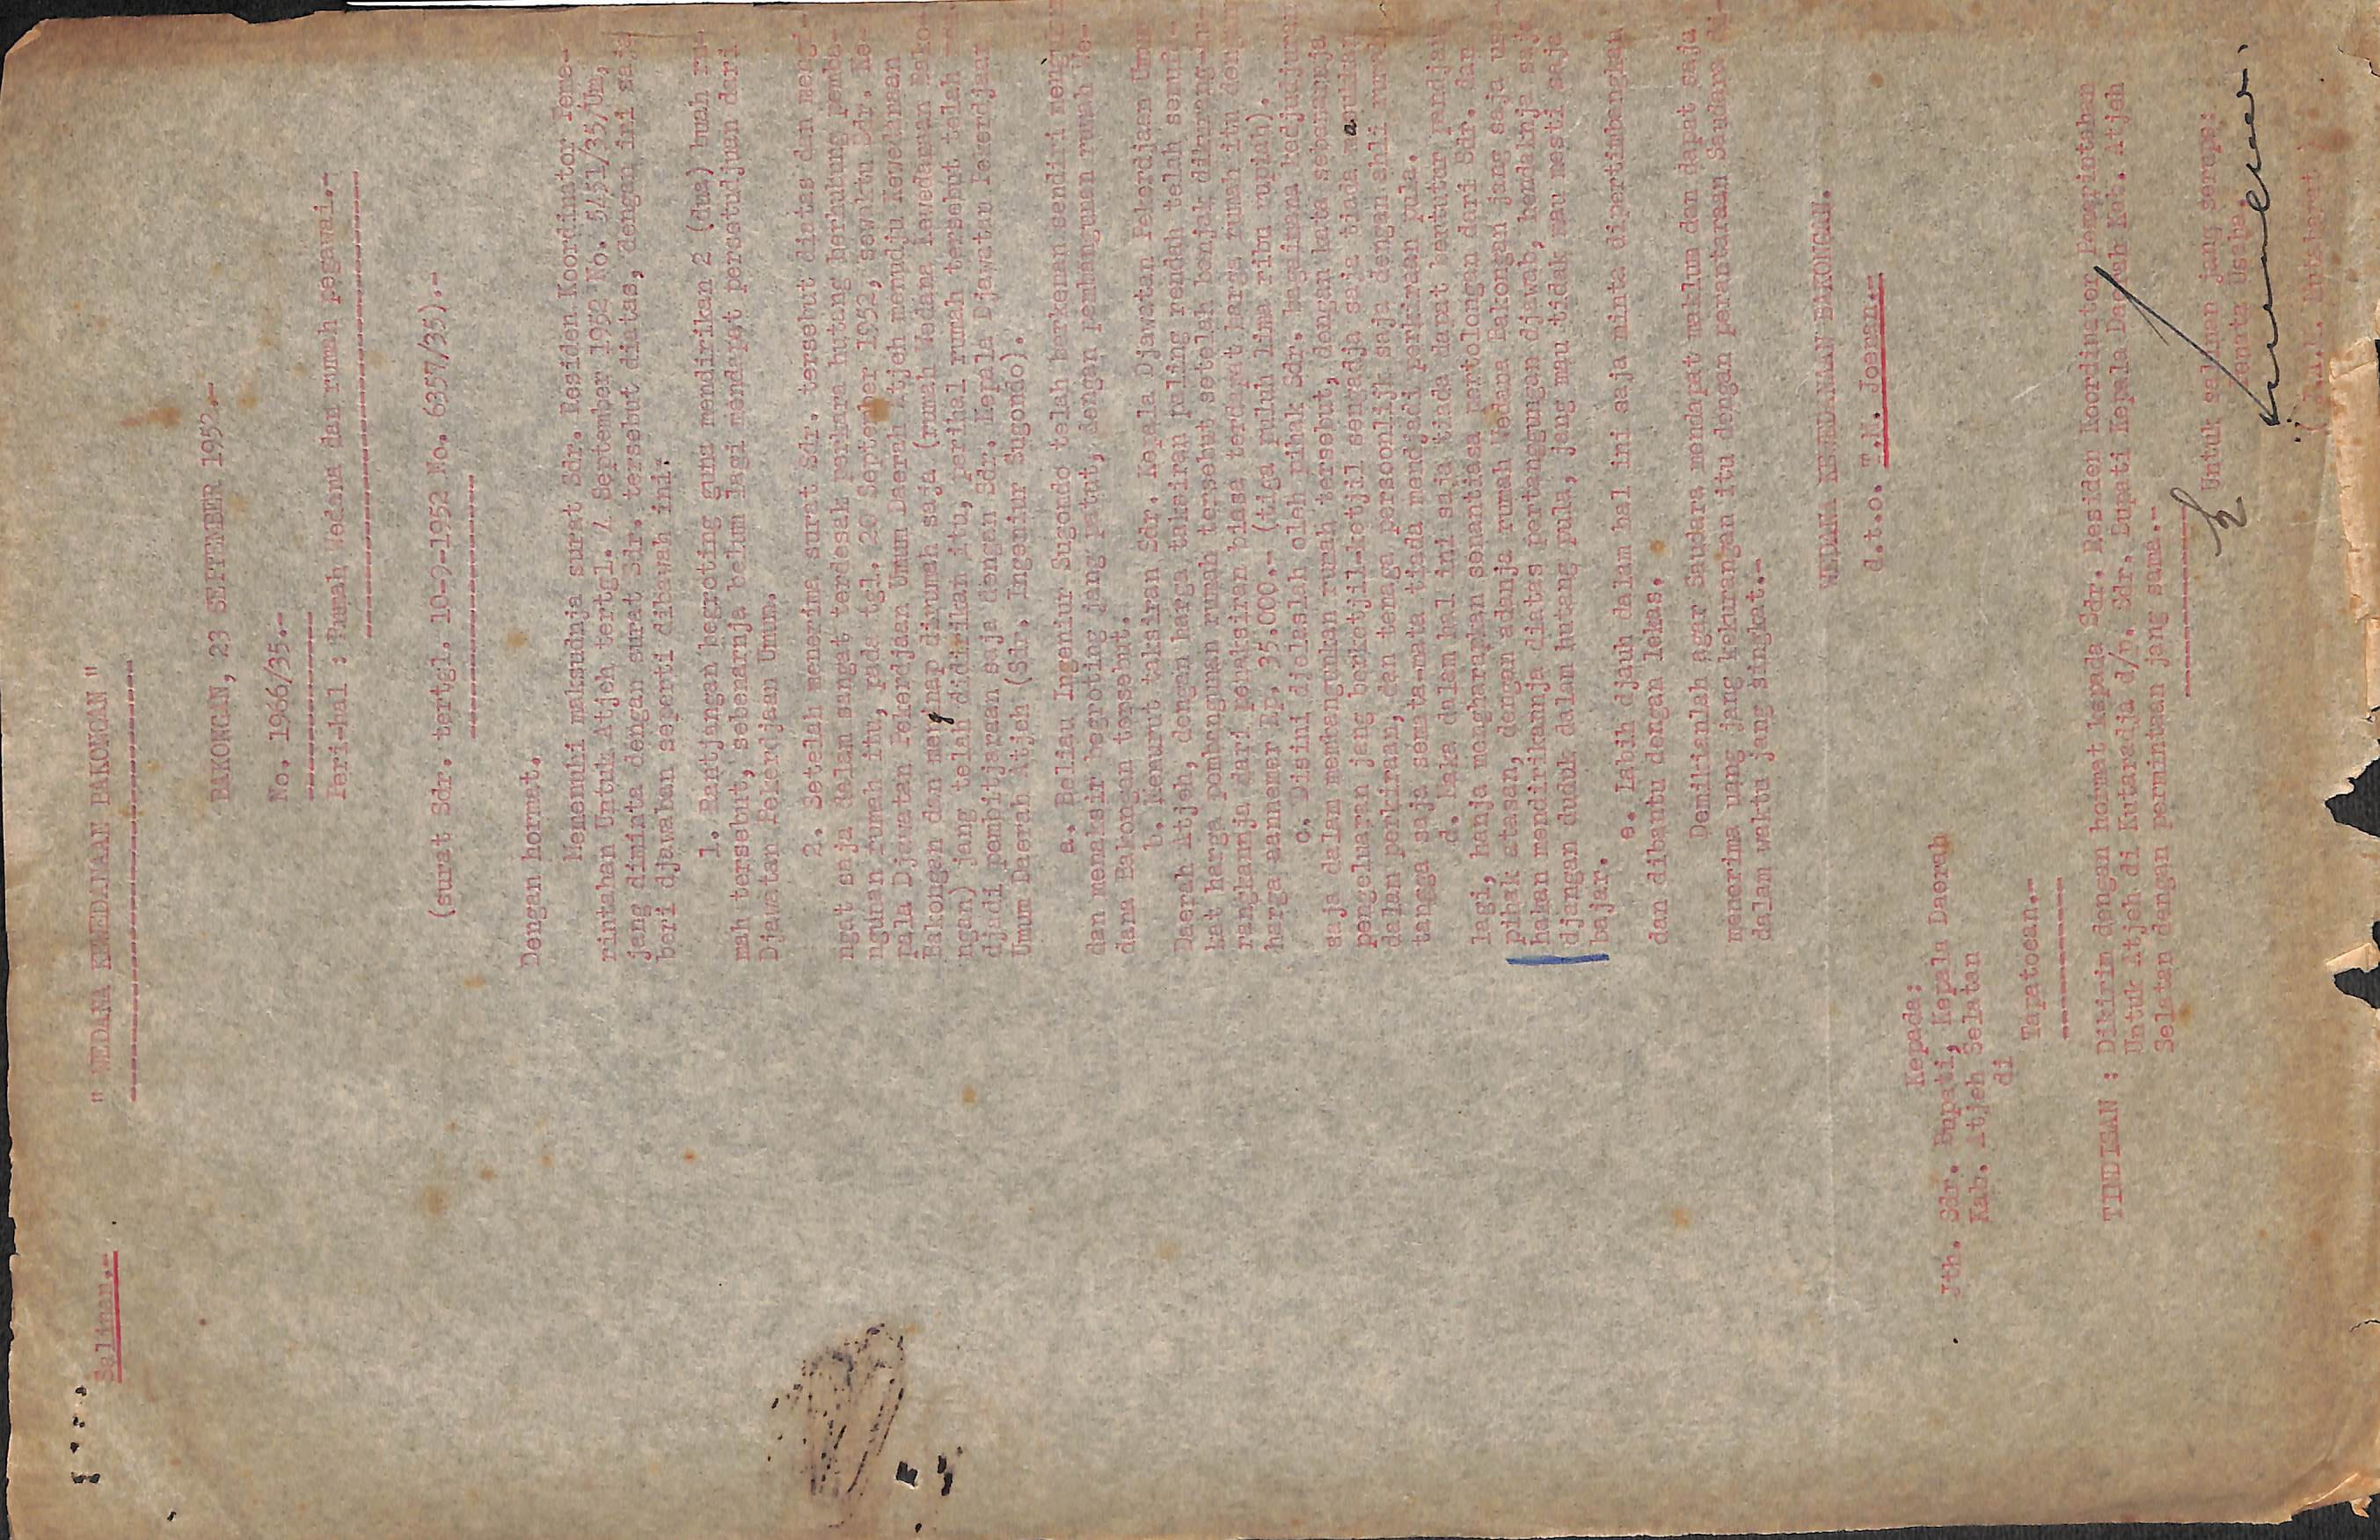 Salinan.-
" WEDANA KEWEDANAAN BAKONGAN "
BAKONGAN, 23 SEPTEMBER 1952.-
No. 1966/35.-
Peri-hal : Rumah Wedana dan rumah pegawai.-
(surat Sdr. tertgl. 10-9-1952 No. 6357/35).-
Dengan hormat.
Memenuhi maksudnja surat Sdr. Residen Koordinator Peme-
rintahan Untuk Atjeh tertgl. 4 September 1952 No. 5451/35/Um,
jang diminta dengan surat Sdr. tersebut diatas, dengan ini saja
beri djawaban seperti dibawah ini:
1. Rantjangan begroting guna mendirikan 2 (dua) buah ru-
mah tersebut, sebenarnja belum lagi mendapat persetudjuan dari
Djawatan Pekerdjaan Umum.
2. Setelah menerima surat Sdr. tersebut diatas dan mengi-
ngat saja dalam sangat terdesak perkara hutang berhubung pemba-
ngunan rumah itu, pada tgl. 20 September 1952, sewaktu Sdr. Ke-
pala Djawatan Pekerdjaan Umum Daerah Atjeh menudju Kewedanaan
Bakongan dan menginap dirumah saja (rumah Wedana Kewedanaan Bako-
ngan) jang telah didirikan itu, perihal rumah tersebut telah
djadi pembitjaraan saja dengan Sdr. Kepala Djawatan Pekerdjaan
Umum Daerah Atjeh (Sdr. Ingeniur Sugondo).
a. Beliau Ingeniur Sugondo telah berkenan sendiri mengukur
dan menaksir begroting jang patut, dengan pembangunan rumah We-
dana Bakongan tersebut.
b. Menurut taksiran Sdr. Kepala Djawatan Pekerdjaan Umum
Daerah Atjeh, dengan harga taksiran paling rendah telah
kat harga pembangunan rumah tersebut setelah banjak dikurang-ku-
rangkannja dari penaksiran biasa terdapat harga rumah itu dengan
harga aannemer Rp. 35.000.- (tiga puluh lima ribu rupiah).
c. Disini djelaslah oleh pihak Sdr. bagaimana kedjudjuran
saja dalam membangunkan rumah tersebut, dengan kata sebenarnja
pengeluaran jang berketjil-ketjil sengadja saja tiada masukkan
dalam perkiraan, dan tenaga persoonlijk saja dengan ahli rumah
tangga saja semata-mata tiada mendjadi perkiraan pula.
d. Maka dalam hal ini saja tiada dapat bertutur pandjang
lagi, hanja mengharapkan senantiasa pertolongan dari Sdr. dan
pihak atasan, dengan adanja rumah Wedana Bakongan jang saja usa-
hakan mendirikannja diatas pertanggungan djawab, hendaknja saja
djangan duduk dalam hutang pula, jang mau tidak mau mesti saja
bajar.
e. Labih djauh dalam hal ini saja minta dipertimbangkan
dan dibantu dengan lekas.
Demikianlah agar Saudara mendapat maklum dan dapat saja
menerima uang jang kekurangan itu dengan perantaraan Saudara di-
dalam waktu jang singkat.-
WEDANA KEWEDANAAN BAKONGAN.
d.t.o. T.N. Joeran.-
Kepada:
Jth. Sdr. Bupati, Kepala Daerah
Kab. Atjeh Selatan
di
Tapatoean.-
TINDISAN : Dikirim dengan hormat kepada Sdr. Residen Koordinator Pemerintahan
Untuk Atjeh di Kutaradja d/p. Sdr. Bupati Kepala Daerah Kab. Atjeh
Selatan dengan permintaan jang sama.-
Untuk salinan jang serupa:
Penata Usaha.